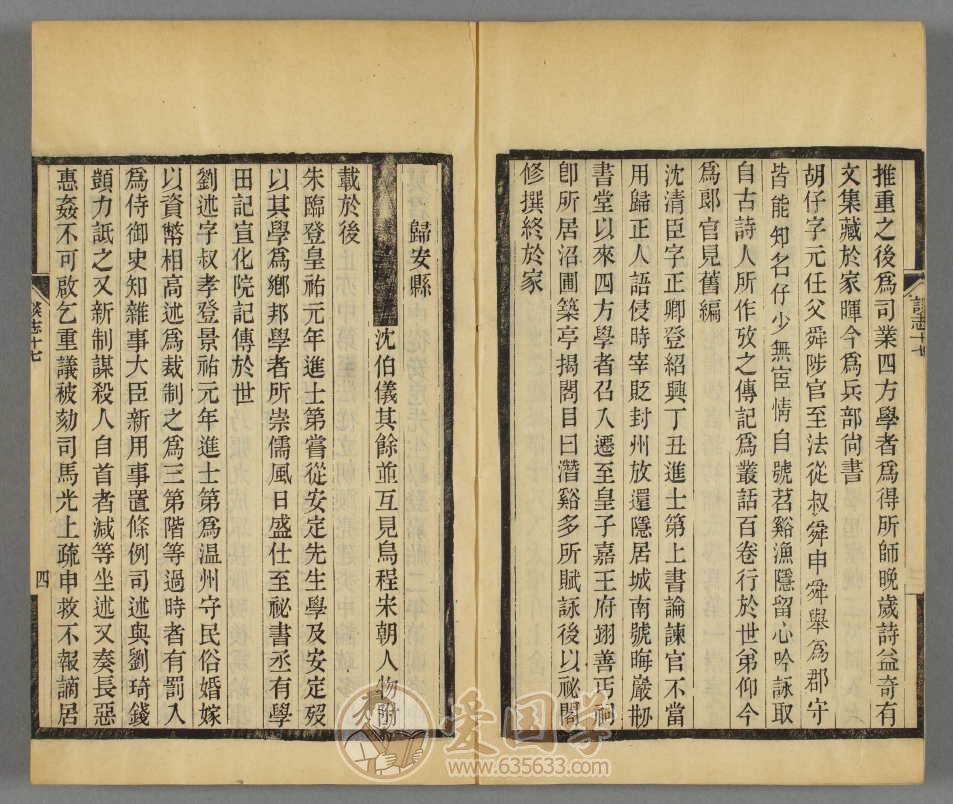 推重之後爲司業四方學者爲得所師晚歲詩益奇有
文集藏於家暉今爲兵部尙書
胡仔字元任父舜陟官至法從叔舜申舜舉爲郡守
皆能知名仔少無宦情自號苕谿漁隱留心吟詠取
自古詩人所作攷之傳記爲叢話百卷行於世弟仰今
爲郞官見舊編
沈清臣字正卿登紹興丁丑進士第上書論諫官不當
用歸正人語侵時宰貶封州放還隱居城南號晦巖刱
書堂以來四方學者召入遷至皇子嘉王府翊善丐祠
卽所居沼圃築亭揭閣目曰潛谿多所賦詠後以祕閣
修撰終於家
談志十七
歸安縣
沈伯儀其餘並互見烏程宋朝人物附
載於後
朱臨登皇祐元年進士第嘗從安定先生學及安定歿
以其學爲鄉邦學者所崇儒風日盛仕至祕書丞有學
田記宣化院記傳於世
劉述字叔孝登景祐元年進士第爲温州守民俗婚嫁
以資幣相高述爲裁制之爲三第階等過時者有罰入
爲侍御史知雜事大臣新用事置條例司述與劉琦錢
顗力詆之又新制謀殺人自首者減等坐述又奏長惡
惠姦不可啟乞重議被劾司馬光上疏申救不報謫居
談志十七
四
爱国学
www.635633.com